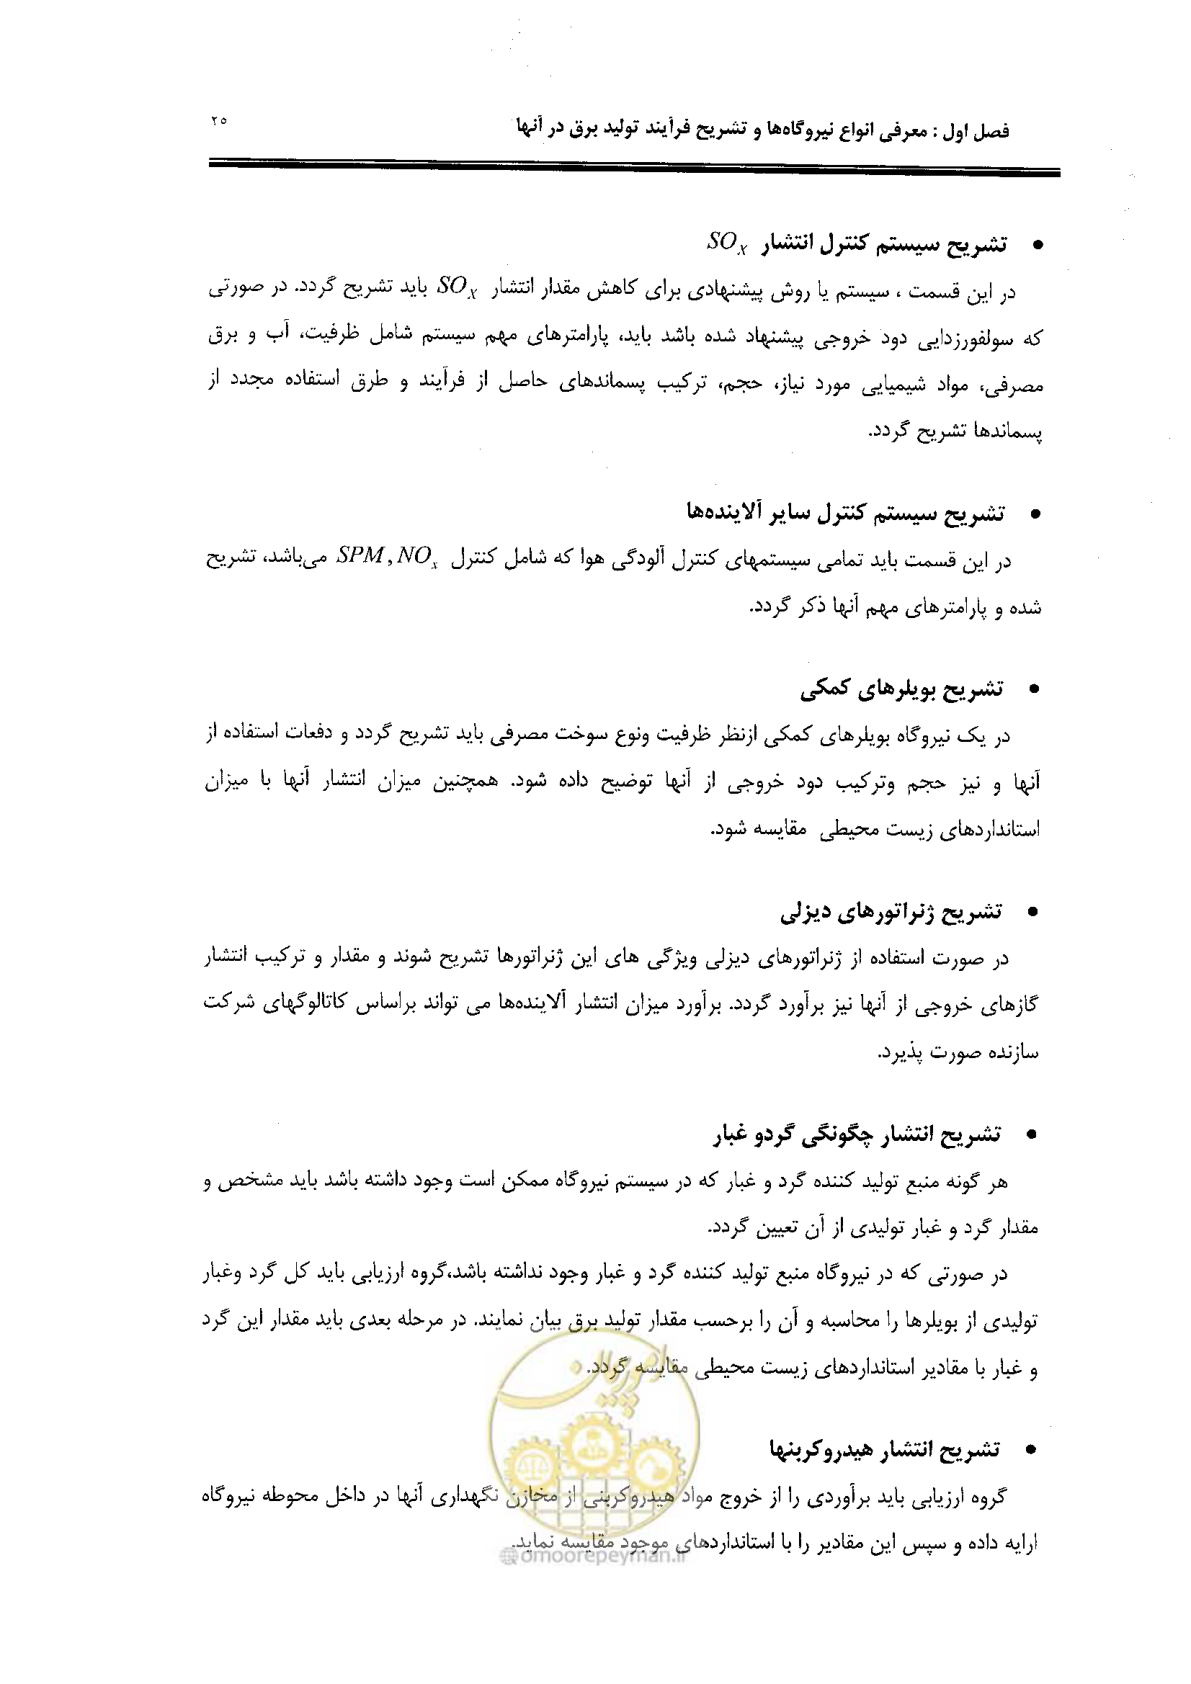 فصل اول : معرفی انواع نیروگاه‌ها و تشریح فرآیند تولید برق در آنها ۲۵
• تشریح سیستم کنترل انتشار SOX
در این قسمت ، سیستم یا روش پیشنهادی برای کاهش مقدار انتشار SOX باید تشریح گردد. در صورتی
که سولفورزدایی دود خروجی پیشنهاد شده باشد باید، پارامترهای مهم سیستم شامل ظرفیت، آب و برق
مصرفی، مواد شیمیایی مورد نیاز، حجم، ترکیب پسماندهای حاصل از فرآیند و طرق استفاده مجدد از
پسماندها تشریح گردد.
• تشریح سیستم کنترل سایر آلاینده‌ها
در این قسمت باید تمامی سیستمهای کنترل آلودگی هوا که شامل کنترل SPM , NOx می‌باشد، تشریح
شده و پارامترهای مهم آنها ذکر گردد.
• تشریح بویلرهای کمکی
در یک نیروگاه بویلرهای کمکی ازنظر ظرفیت ونوع سوخت مصرفی باید تشریح گردد و دفعات استفاده از
آنها و نیز حجم وترکیب دود خروجی از آنها توضیح داده شود. همچنین میزان انتشار آنها با میزان
استانداردهای زیست محیطی مقایسه شود.
• تشریح ژنراتورهای دیزلی
در صورت استفاده از ژنراتورهای دیزلی ویژگی های این ژنراتورها تشریح شوند و مقدار و ترکیب انتشار
گازهای خروجی از آنها نیز برآورد گردد. برآورد میزان انتشار آلاینده‌ها می تواند براساس کاتالوگهای شرکت
سازنده صورت پذیرد.
• تشریح انتشار چگونگی گردو غبار
هر گونه منبع تولید کننده گرد و غبار که در سیستم نیروگاه ممکن است وجود داشته باشد باید مشخص و
مقدار گرد و غبار تولیدی از آن تعیین گردد.
در صورتی که در نیروگاه منبع تولید کننده گرد و غبار وجود نداشته باشد،گروه ارزیابی باید کل گرد وغبار
تولیدی از بویلرها را محاسبه و آن را برحسب مقدار تولید برق بیان نمایند. در مرحله بعدی باید مقدار این گرد
و غبار با مقادیر استانداردهای زیست محیطی مقایسه گردد.
امورپیمان
• تشریح انتشار هیدروکربنها
گروه ارزیابی باید برآوردی را از خروج مواد هیدروکربنی از مخازن نگهداری آنها در داخل محوطه نیروگاه
ارایه داده و سپس این مقادیر را با استانداردهای موجود مقایسه نماید.
@omoorepeyman.ir